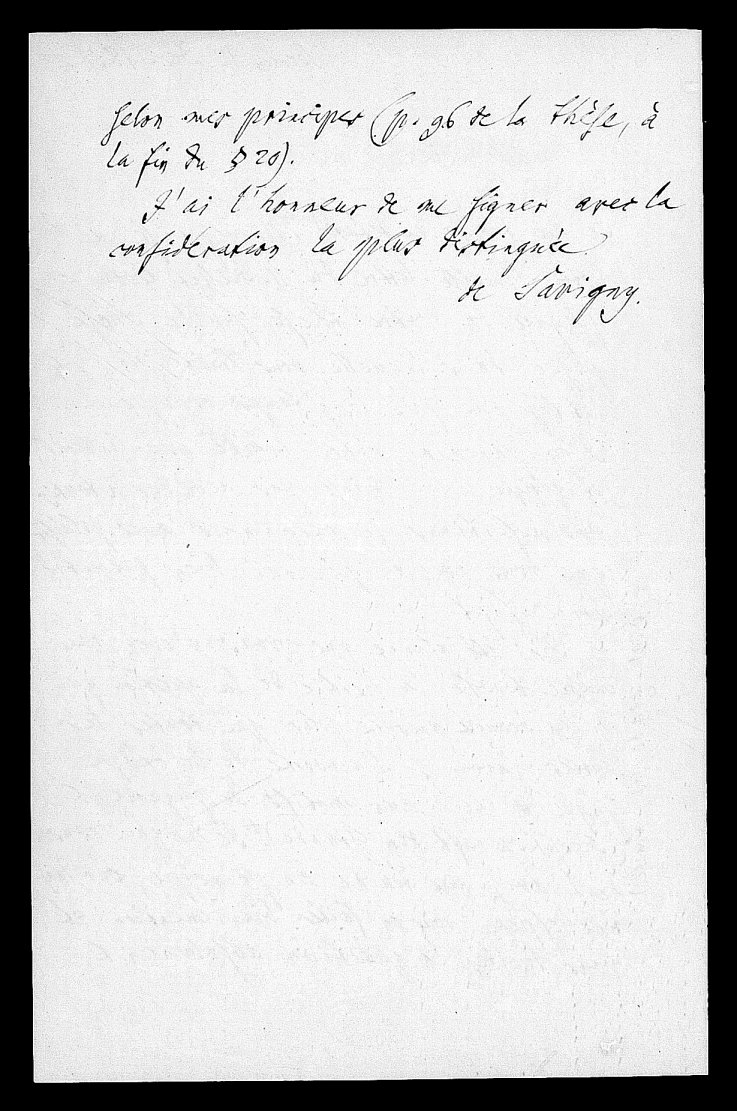 selon mes principes (p. 96 de la thèse, à
la fin du § 20).
J'ai l'honneur de me signer avec la
considération la plus distinguée.
de Savigny.